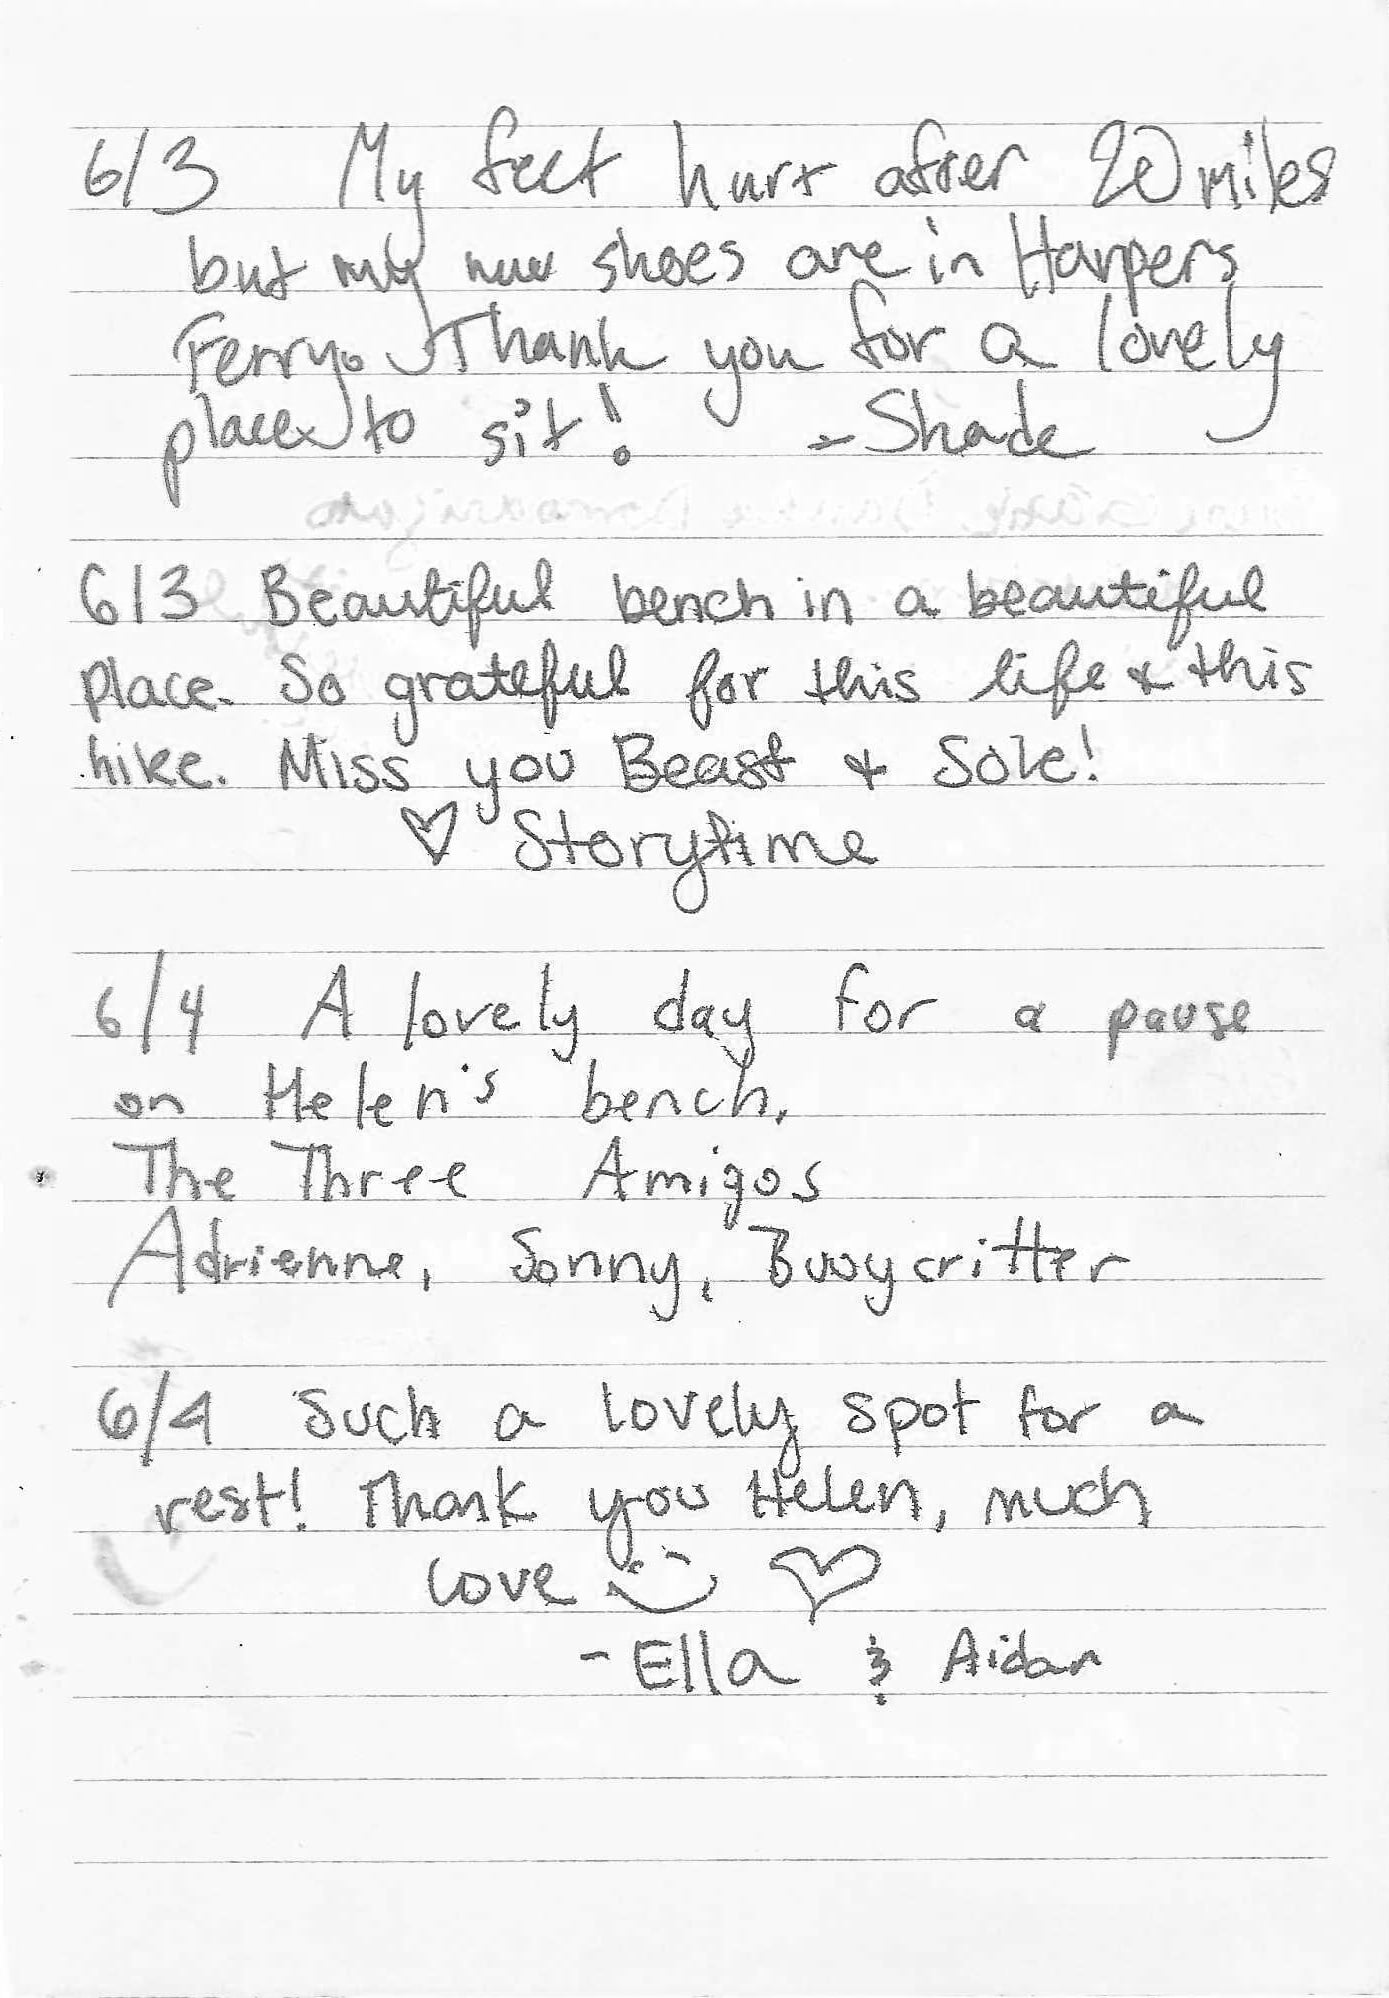 6/3 My feet hurt after 20 miles
but my new shoes are in Harpers
Ferry. Thank you for a lovely
place to sit! - Shade
6/3 Beautiful bench in a beautiful
place. So grateful for this life & this
hike. Miss you Beast & Sole!
♡ Storytime
6/4 A lovely day for a pause
on Helen's bench.
The Three Amigos
Adrienne, Sonny, Buoycritter
6/4 Such a lovely spot for a
rest! Thank you Helen, much
love ♡
- Ella & Aidan